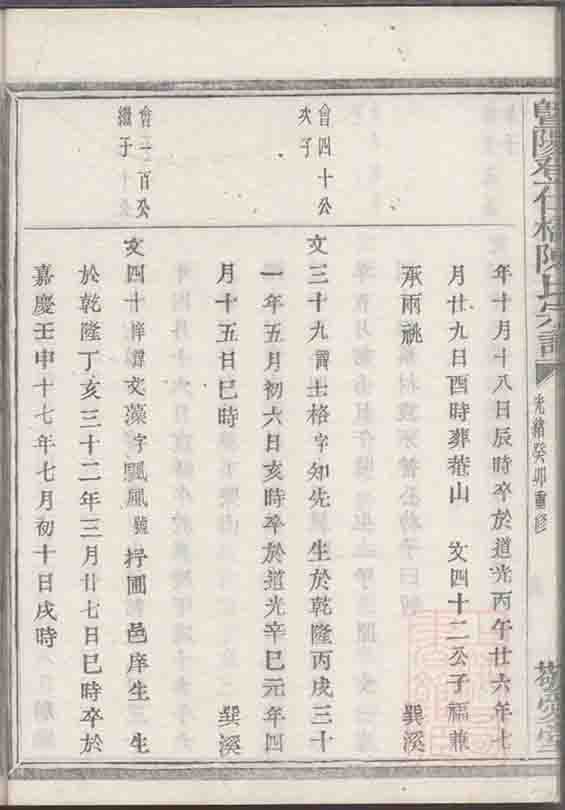 暨陽
橋陳氏宗譜
光緒癸卯重修
敬愛堂
年十月十八日辰時卒於道光丙午廿六年七
月廿九日酉時葬菴山 文四十二公子福兼
承兩祧 巽溪
會四十公
次子
文三十九諱士格字知先生於乾隆丙戌三十
一年五月初六日亥時卒於道光辛巳元年四
月十五日巳時 巽溪
會一百公
繼子
文四十 諱文藻字颺風號抒圃邑庠生 生
於乾隆丁亥三十二年三月廿七日巳時卒於
嘉慶壬申十七年七月初十日戌時